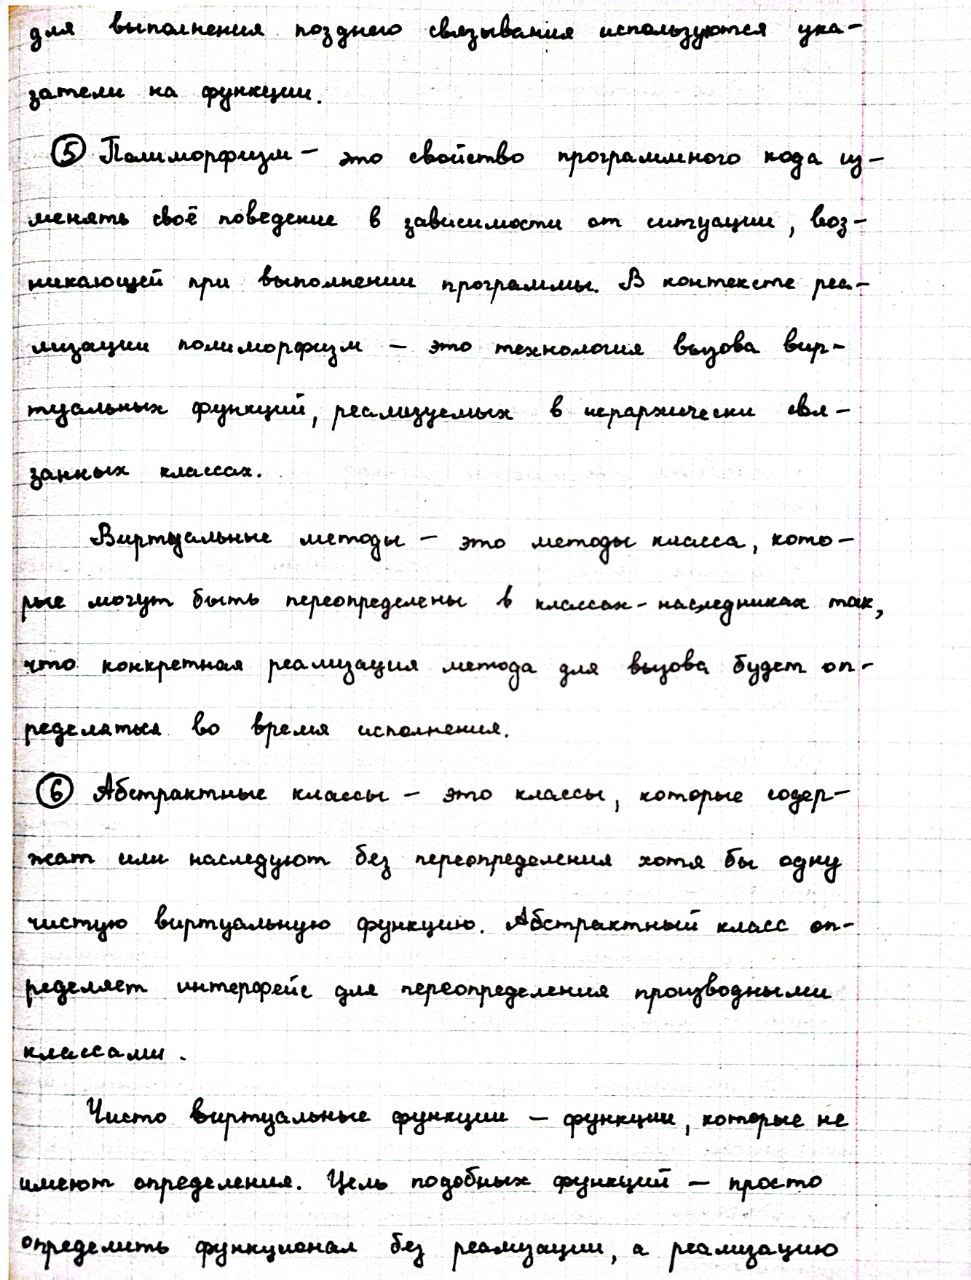 для выполнения позднего связывания используются ука-
затели на функции.
⑤ Полиморфизм – это свойство программного кода из-
менять своё поведение в зависимости от ситуации, воз-
никающей при выполнении программы. В контексте реа-
лизации полиморфизм – это технология вызова вир-
туальных функций, реализуемых в иерархически свя-
занных классах.
Виртуальные методы – это методы класса, кото-
рые могут быть переопределены в классах-наследниках так,
что конкретная реализация метода для вызова будет оп-
ределяться во время исполнения.
⑥ Абстрактные классы – это классы, которые содер-
жат или наследуют без переопределения хотя бы одну
чистую виртуальную функцию. Абстрактный класс оп-
ределяет интерфейс для переопределения производными
классами.
Чисто виртуальные функции – функции, которые не
имеют определения. Цель подобных функций – просто
определить функционал без реализации, а реализацию